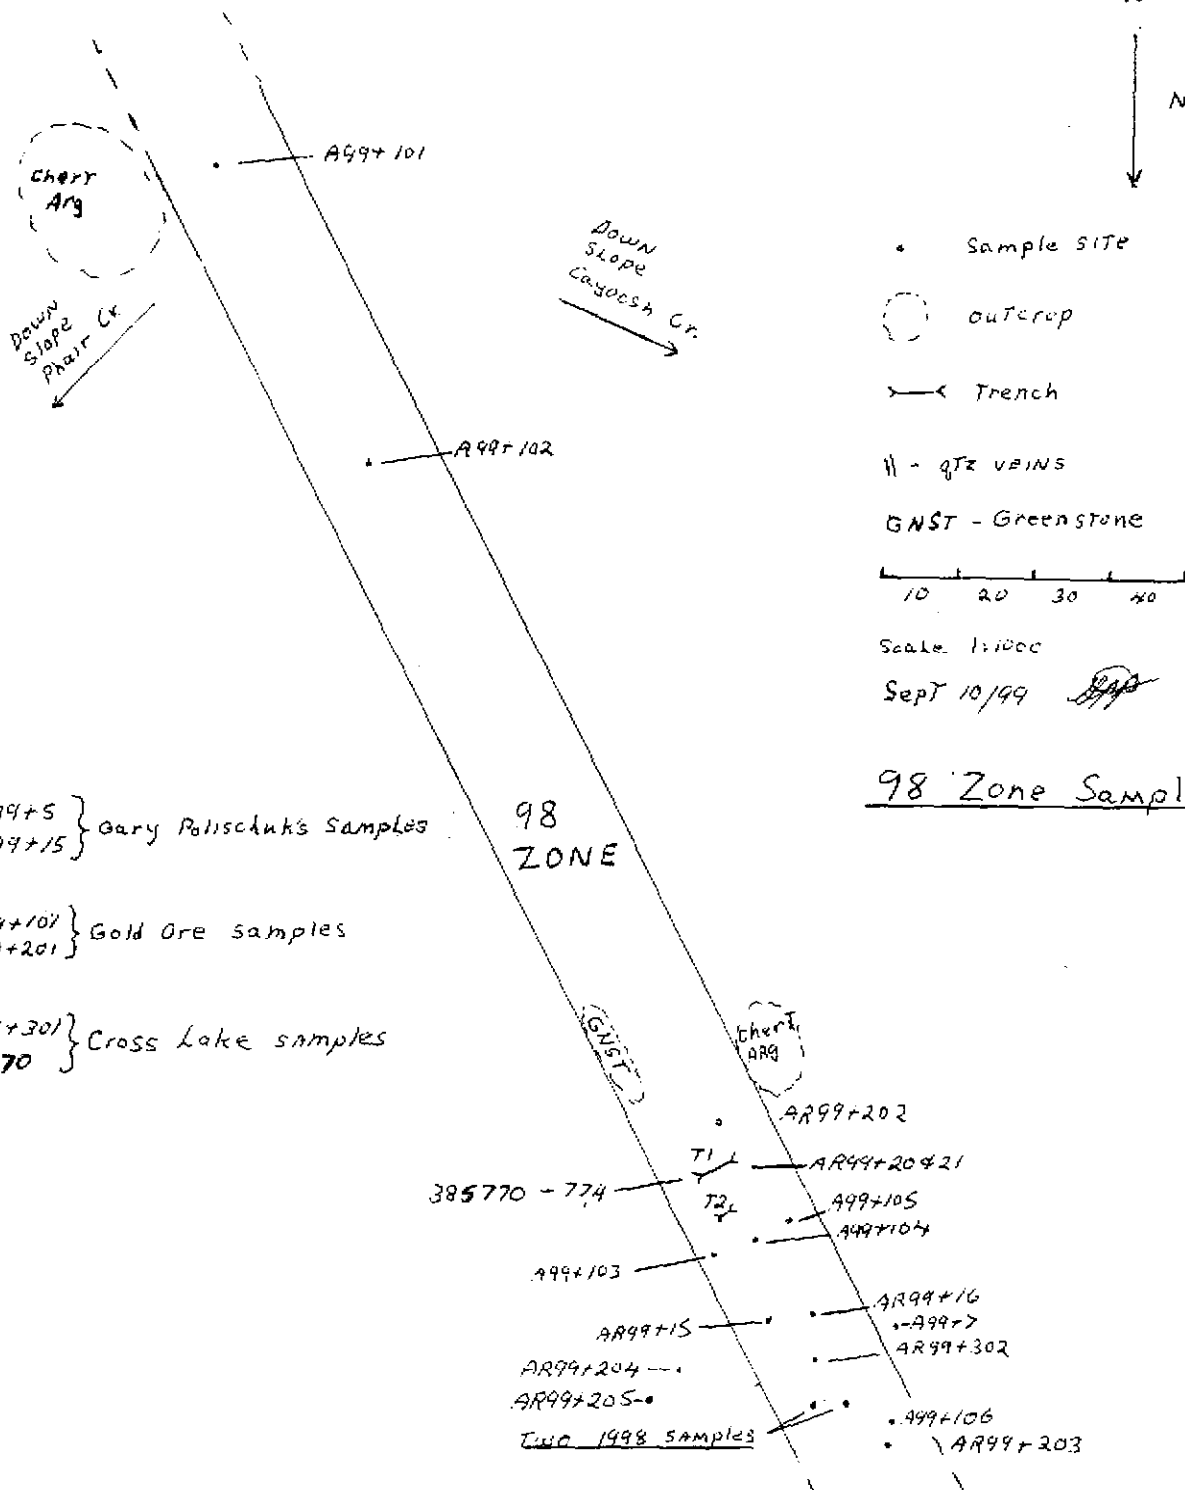 N
A99+101
Cherr
Arg
Down
Slope
Phair Cr.
Down
Slope
Cayoosh Cr.
• Sample SITe
outcrop
Trench
- qTZ VEINS
GNST - Greenstone
10 20 30 40
Scale 1:1000
SepT 10/99
98 Zone Sampl
A99+102
98
ZONE
99+5
99+15
Gary Polischuk's Samples
+101
+201
Gold Ore samples
+301
70
Cross Lake samples
GNST
CherT,
ARg
AR99+202
T1
AR99+20&21
385770 - 774
T2
A99+105
A99+104
A99+103
AR99+16
AR99+15
A99+7
AR99+302
AR99+204
AR99+205
Two 1998 SAmples
A99+106
AR99+203